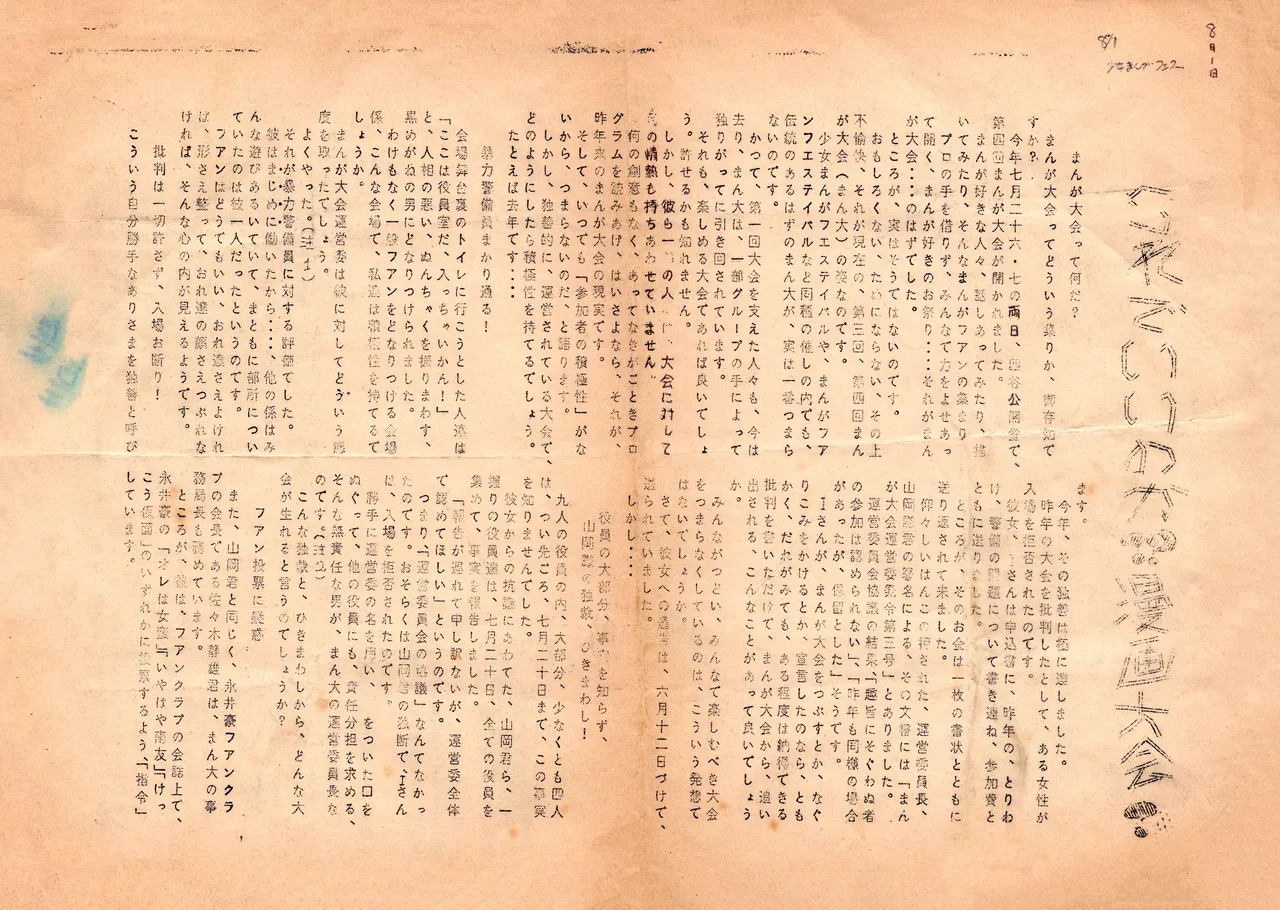 8月1日
8/1
少女まんがフェスー
これでいいのか!!漫画大会!!
まんが大会って何だ?
まんが大会ってどういう集りか、御存知で
すか?
今年七月二十六・七の両日、四谷公開堂で、
第四回まんが大会が開かれました。
まんが好きな人々、話しあってみたり、描
いてみたり、そんなまんがファンの集まり
プロの手を借りず、みんなで力をよせあっ
て開く、まんが好きのお祭り・・・それがまん
が大会・・・のはずでした。
ところが、実はそうではないのです。
おもしろくない、ためにならない、その上
不愉快、それが現在の、第三回、第四回まん
が大会(まん大)の姿なのです。
少女まんがフエステイバルや、まんがフア
ンフエステイバルなど同種の催しの内でも、
伝統のあるはずのまん大が、実は一番つまら
ないのです。
かつて、第一回大会を支えた人々も、今は
去り、まん大は、一部グループの手によって
独りがってに引き回されています。
それも、楽しめる大会であれば良いでしょ
う。許せるかも知れません。
しかし、彼ら一 の人 は、大会に対して
何の情熱も持ちあわせていません。
何の創意もなく、あってなきがごときプロ
グラムを読みあげ、はいさよなら、それが、
昨年来のまんが大会の現実です。
そして、いつでも「参加者の積極性」がな
いから、つまらないのだ、と語ります。
しかし、独善的に、運営されている大会で、
どのようにしたら積極性を持てるでしょう。
たとえば去年です・・・
暴力警備員まかり通る!
会場舞台裏のトイレに行こうとした人達は
「ここは役員室だ、入っちゃいかん!」
と、人相の悪い、ぬんちゃくを振りまわす、
黒めがねの男にどなりつけられました。
わけもなく一般フアンをどなりつける会場
係、こんな会場で、私達は積極性を持てるで
しょうか。
まんが大会運営委は彼に対してどういう態
度を取ったでしょう。
よくやった。(注1)
それが暴力警備員に対する評価でした。
彼はまじめに働いたから・・・、他の係はみ
んな遊びあるいていて、まともに部所につい
ていたのは彼一人だったというのです。
フアンはどうでもいい、お れ達さえよけれ
ば、形さえ整って、おれ達の顔さえつぶれな
ければ、そんな心の内が見えるようです。
批判は一切許さず、入場お断り!
こういう自分勝手なありさまを独善と呼び
ます。
今年、その独善は極に達しました。
昨年の大会を批判したとして、ある女性が
入場を拒否されたのです。
彼女、Iさんは申込書に、昨年の、とりわ
け、警備の問題について書き連ね、参加費と
ともに送りました。
ところが、そのお金は一枚の書状とともに
送り返されて来ました。
仰々しいはんこの押された、運営委員長、
山岡謙君の署名による、その文書には「まん
が大会運営委発令第三号」とありました。
「運営委員会協議の結果「趣旨にそぐわぬ者
の参加は認められない」、「昨年も同様の場合
があったが、保留とした」そうです。
Iさんが、まんが大会をつぶすとか、なぐ
りこみをかけるとか、宣言したのなら、とも
かく、だれがみても、ある程度は納得できる
批判を書いただけで、まんが大会から、追い
出される、こんなことがあって良いでしょう
か。
みんながつどい、みんなで楽しむべき大会
をつまらなくしているのは、こういう発想で
はないでしょうか。
さて、彼女への通告は、六月十二日づけで、
送られていました。
しかし・・・
役員の大部分、事実を知らず、
山岡謙の独裁、ひきまわし!
九人の役員の内、大部分、少なくとも四人
は、つい先ごろ、七月二十日まで、この事実
を知りませんでした。
彼女からの抗議にあわてた、山岡君ら、一
握りの役員達は、七月二十日、全ての役員を
集めて、事実を報告しました。
「報告が遅れて申し訳ないが、運営委全体
で認めてほしい」というのです。
つまり「運営委員会の協議」なんてなかっ
たのです。おそらくは山岡君の独断で、Iさん
は、入場を拒否されたのです。
勝手に運営委の名を用い、 をついた口を
ぬぐって、他の役員にも、責任分担を求める、
そんな無責任な男が、まん大の運営委員長な
のです。(注2)
こんな独裁と、ひきまわしから、どんな大
会が生れると言うのでしょうか?
フアン投票に疑惑
また、山岡君と同じく、永井豪フアンクラ
ブの会長である佐々木静雄君は、まん大の事
務局長も務めています。
ところが、彼は、フアンクラブの会誌上で、
永井豪の「オレは女蛮」「いやはや南友」「けっ
こう仮面」のいずれかに投票するよう、「指令」
しています。